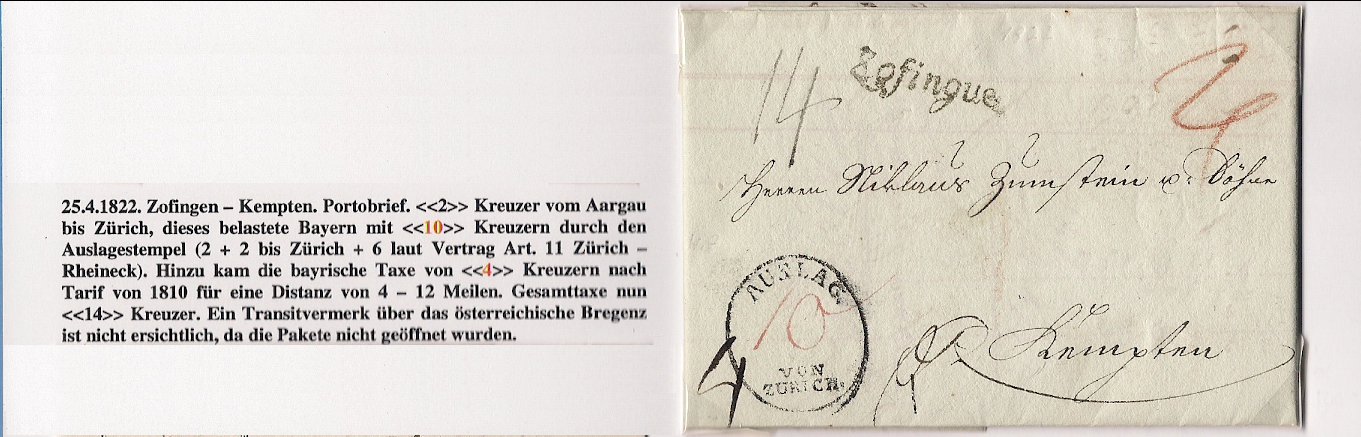 25.4.1822. Zofingen – Kempten. Portobrief. <<2>> Kreuzer vom Aargau
bis Zürich, dieses belastete Bayern mit <<10>> Kreuzern durch den
Auslagestempel (2 + 2 bis Zürich + 6 laut Vertrag Art. 11 Zürich –
Rheineck). Hinzu kam die bayrische Taxe von <<4>> Kreuzern nach
Tarif von 1810 für eine Distanz von 4 – 12 Meilen. Gesamttaxe nun
<<14>> Kreuzer. Ein Transitvermerk über das österreichische Bregenz
ist nicht ersichtlich, da die Pakete nicht geöffnet wurden.
14
Zofingue
Herren Niklaus Zumstein u. Söhne
AUSLAG.
10
VON
ZURICH.
4
Kempten